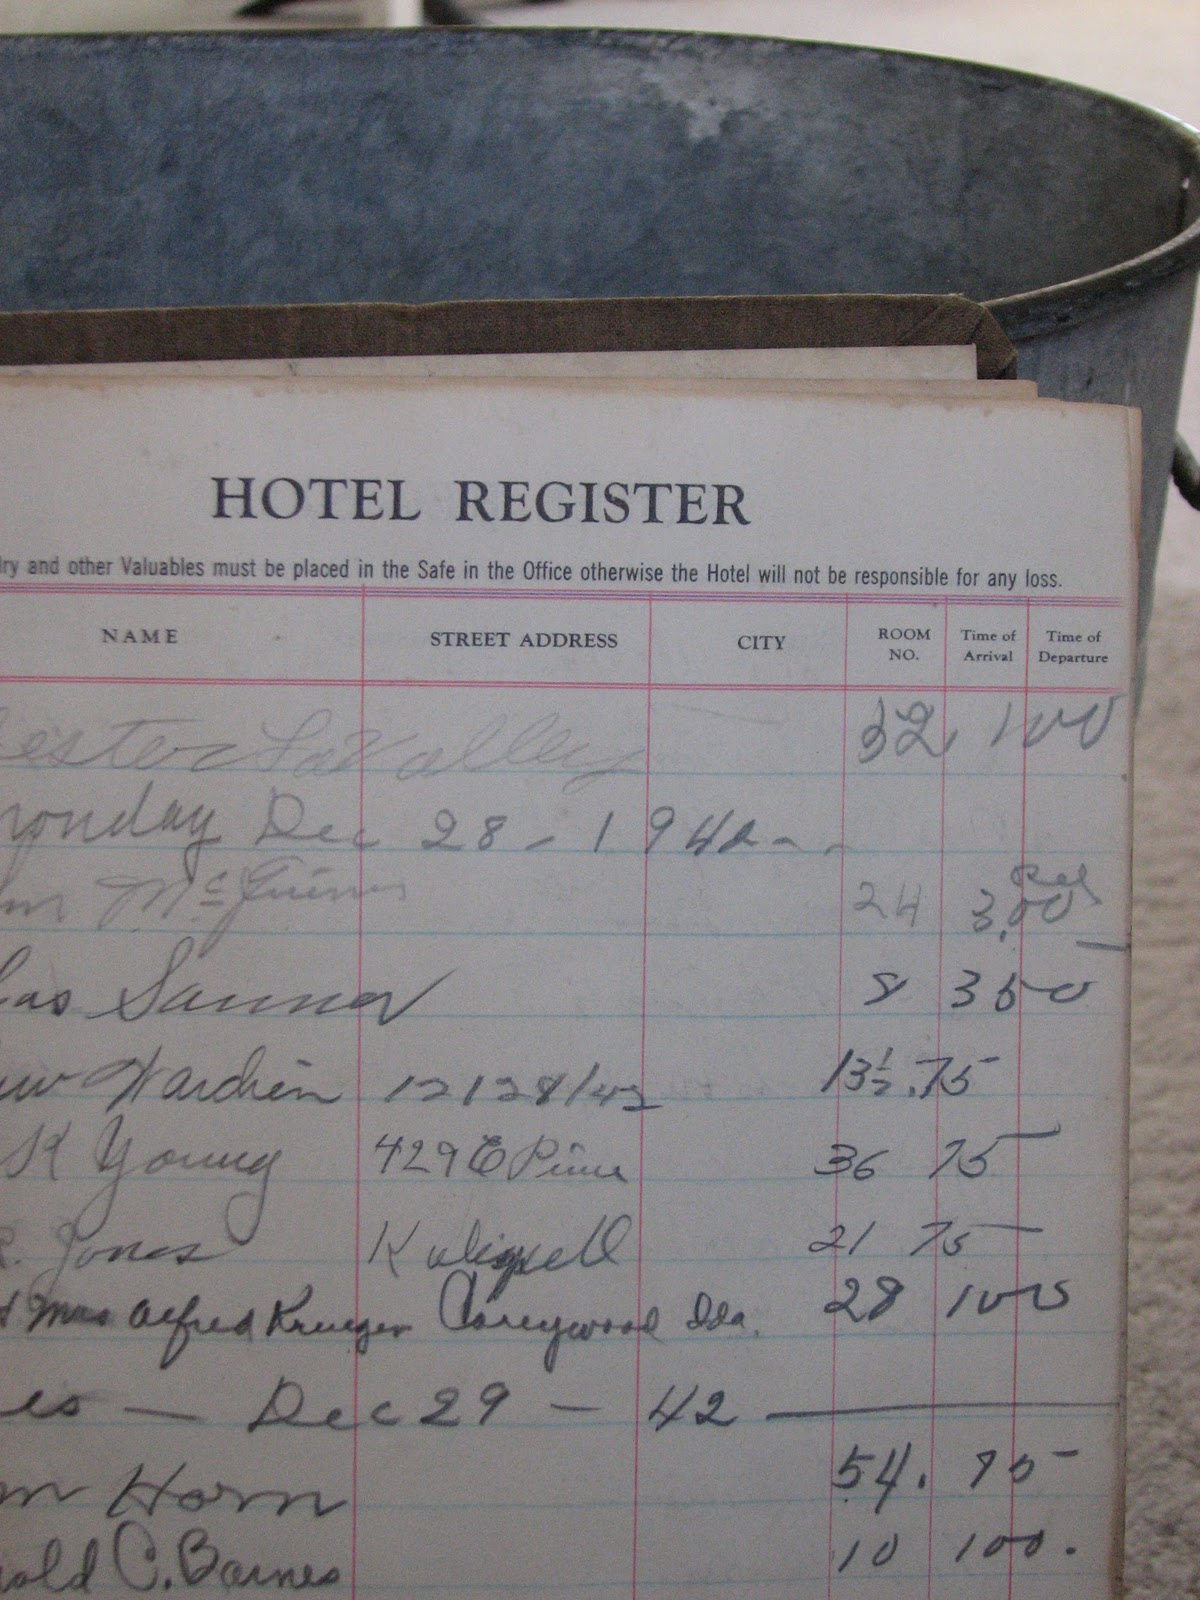 HOTEL REGISTER
lry and other Valuables must be placed in the Safe in the Office otherwise the Hotel will not be responsible for any loss.
NAME STREET ADDRESS CITY ROOM NO. Time of Arrival Time of Departure
ester LaValley 32 100
onday Dec 28 - 1942
m McGuinn 24 3.00
has Sannor 8 350
Wardien 12/28/42 13½ .75
K Young 429 E Pine 36 75
R. Jones Kalispell 21 75
Mrs Alfred Krueger Careywood Ida. 28 100
es — Dec 29 — 42
m Horn 54. 75
old C. Barnes 10 100.